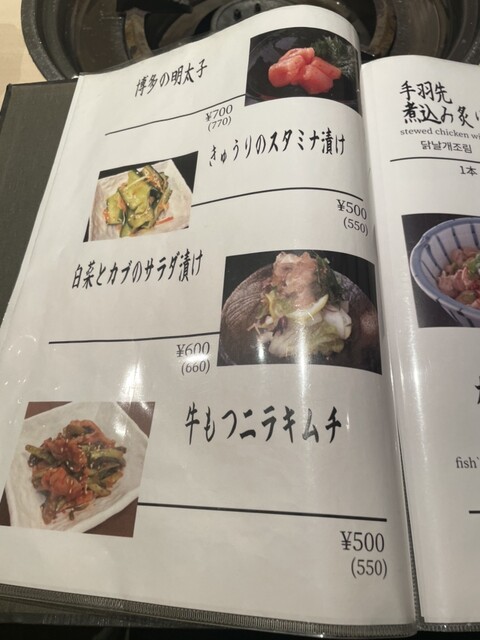 博多の明太子
¥700
(770)
きゅうりのスタミナ漬け
¥500
(550)
白菜とカブのサラダ漬け
¥600
(660)
牛もつニラキムチ
¥500
(550)
手羽先
煮込み炙り
stewed chicken wi
닭날개조림
1本
fish